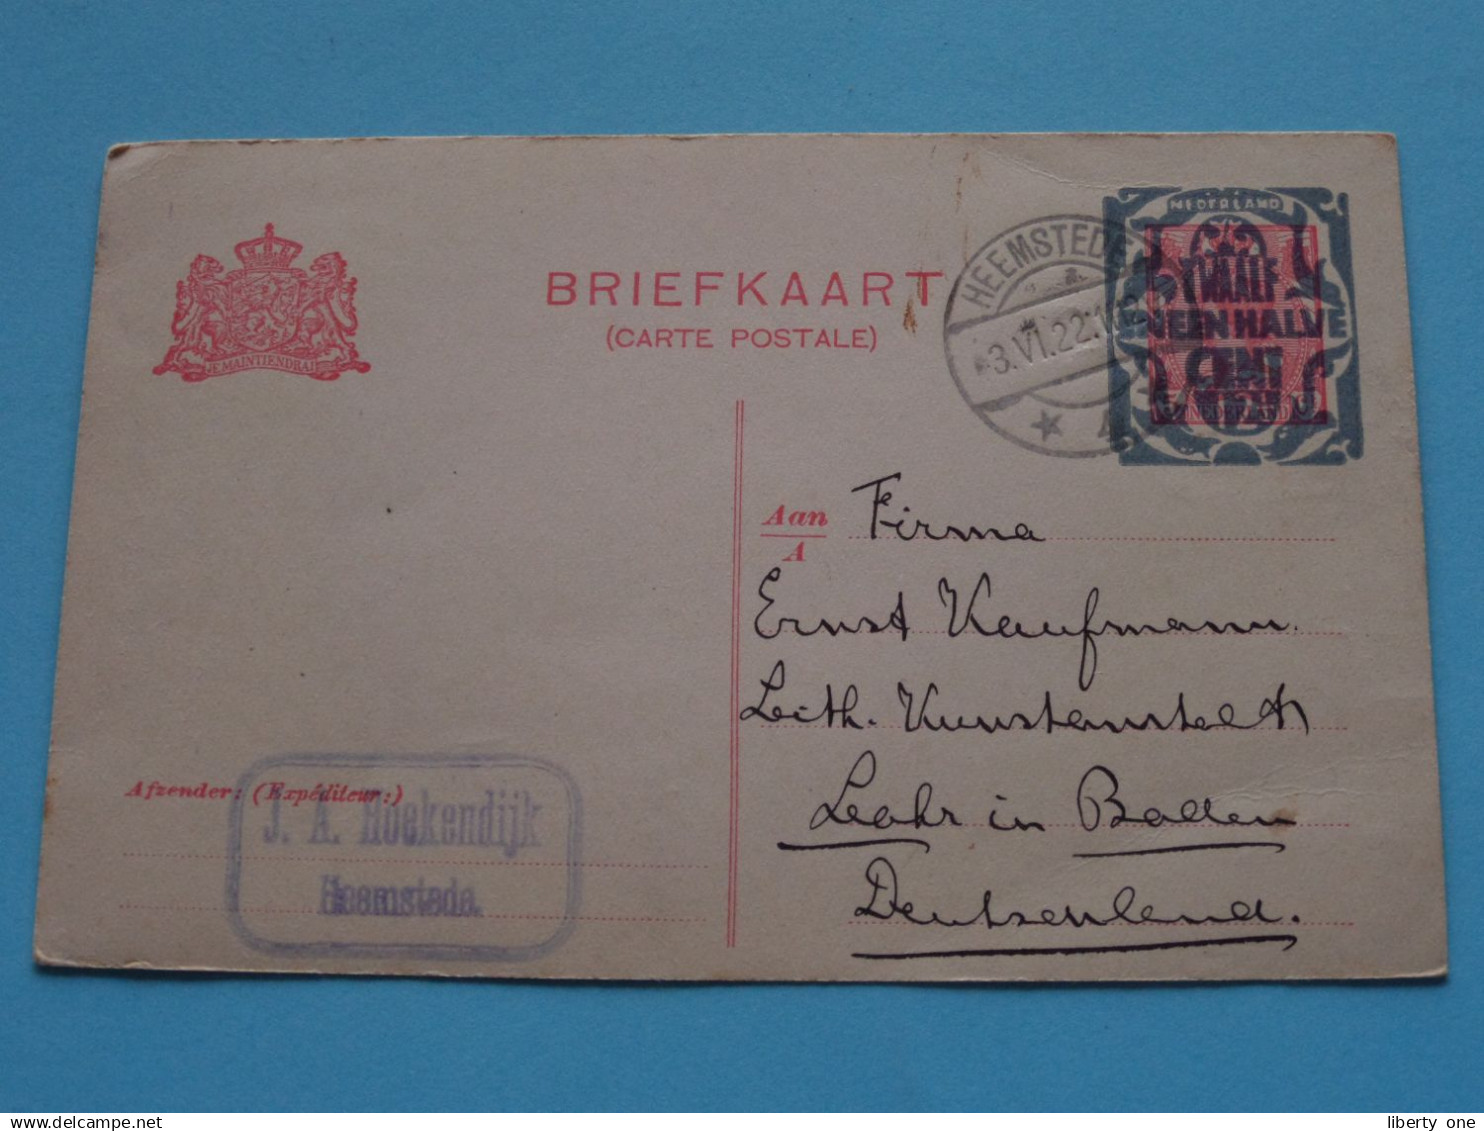 BRIEFKAART
(CARTE POSTALE)
JE MAINTIENDRAI
HEEMSTEDE
3.VI.22
NEDERLAND
TWAALF
EN EEN HALVE
CENT
NEDERLAND
Aan
A
Firma
Ernst Kaufmann
Lith. Kunstanstalt
Leohr in Baden
Deutschland.
Afzender: (Expéditeur:)
J. A. Hoekendijk
Heemstede.
liberty one